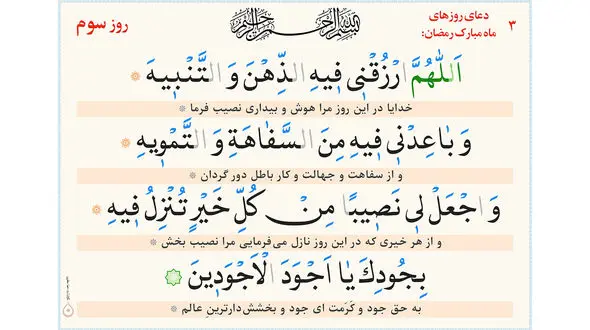 ۳ دعای روزهای
ماه مبارک رمضان:
بسم الله الرحمن الرحیم
روز سوم
اَللّٰهُمَّ ارْزُقْنی فیهِ الذِّهْنَ وَ التَّنْبیهَ
خدایا در این روز مرا هوش و بیداری نصیب فرما
وَ باعِدْنی فیهِ مِنَ السَّفاهَةِ وَ التَّمْویهِ
و از سفاهت و جهالت و کار باطل دور گردان
وَ اجْعَلْ لی نَصیبًا مِنْ کُلِّ خَیْرٍ تُنْزِلُ فیهِ
و از هر خیری که در این روز نازل می‌فرمایی مرا نصیب بخش
بِجُودِكَ یا اَجْوَدَ الْاَجْوَدینَ
به حق جود و کَرَمت ای جود و بخشش‌دارترینِ عالم